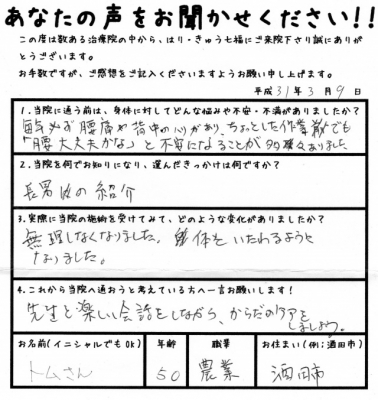 あなたの声をお聞かせください!!
この度は数ある治療院の中から、はり・きゅう七福にご来院下さり誠にありが
とうございます。
お手数ですが、ご感想をご記入くださいますようお願い申し上げます。
平成 31年 3月 9日
1.当院に通う前は、身体に対してどんな悩みや不安・不満がありましたか?
必ず腰痛や背中の があり、ちょっとした作業 でも
「腰大丈夫かな」と不安になることが多々ありました
2.当院を何でお知りになり、選んだきっかけは何ですか?
長男 の紹介
3.実際に当院の施術を受けてみて、どのような変化がありましたか?
無理しなくなりました。 体をいたわるように
なりました。
4.これから当院へ通おうと考えている方へ一言お願いします!
先生と楽しい会話をしながら、からだのケアを
しましょう。
お名前(イニシャルでもOK) 年齢 職業 お住まい(例:酒田市)
トムさん 50 農業 酒田市